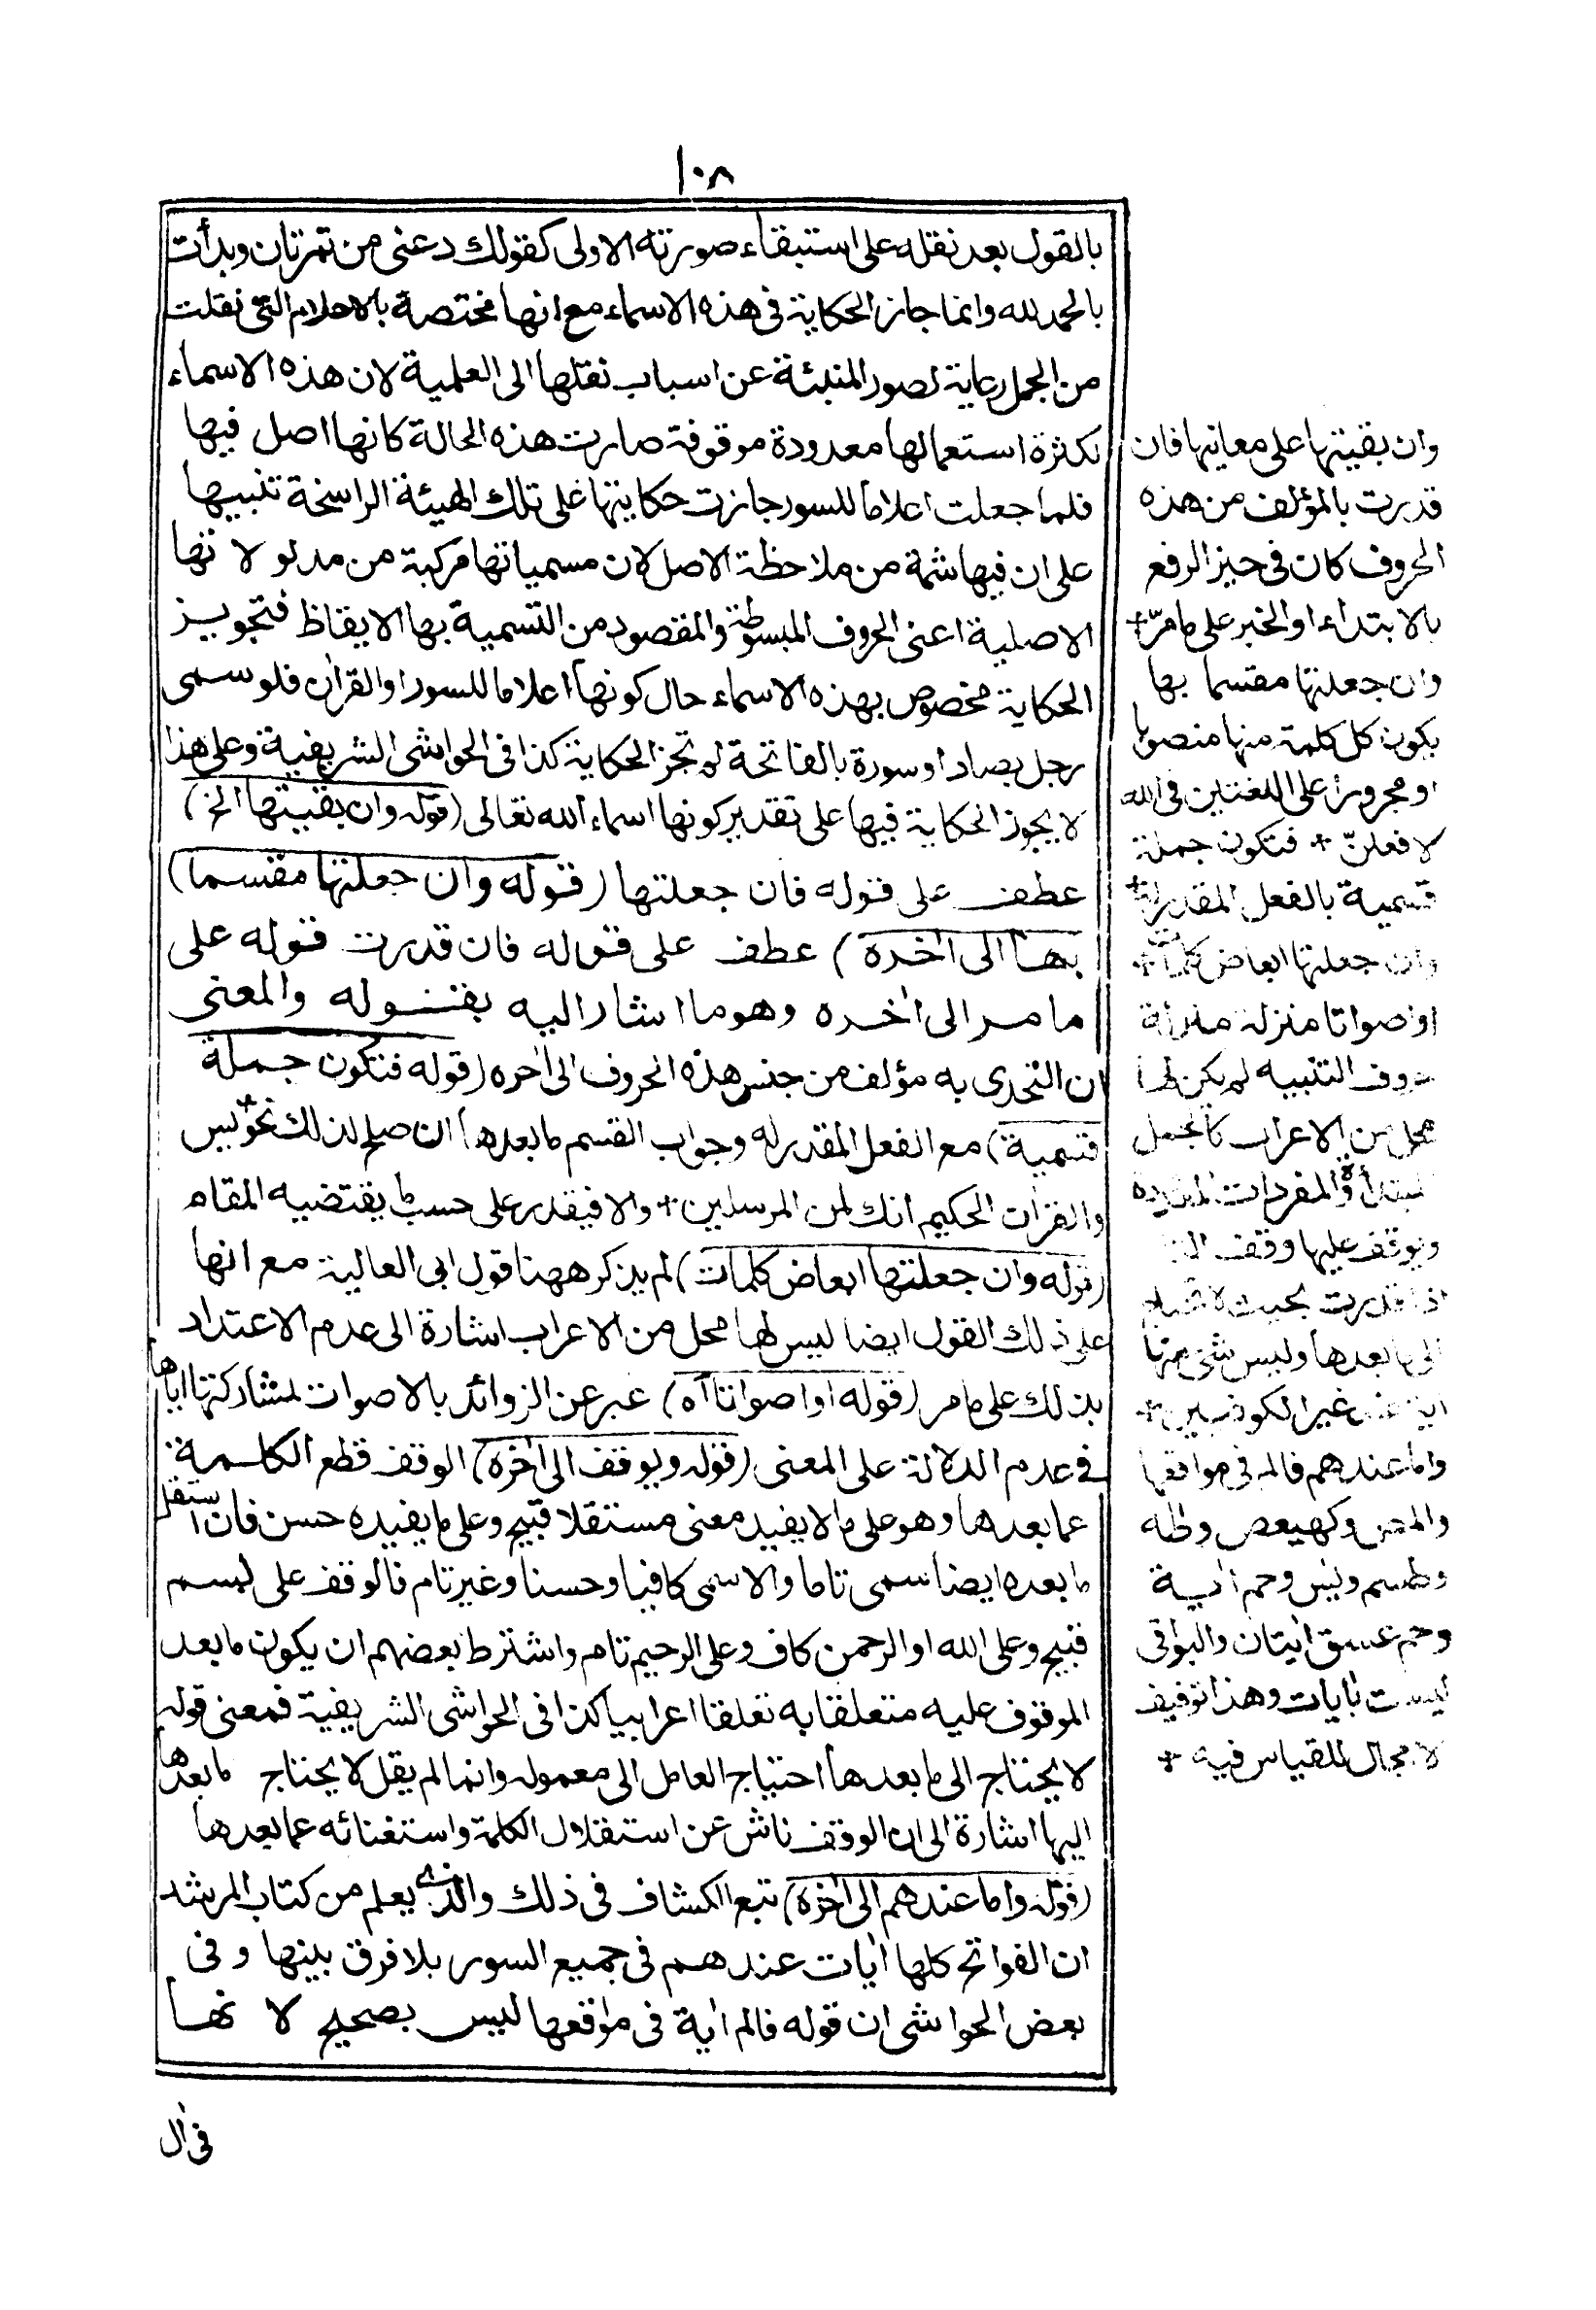 ١٠٨
بالقول بعد نقله على استبقاء صورته الاولى كقولك دعنى من تمرتان وبدأت
بالحمد لله وانما جاز الحكاية فى هذه الاسماء مع انها مختصة بالاعلام التى نقلت
من الجمل رعاية لصور المنبئة عن اسباب نقلها الى العلمية لان هذه الاسماء
لكثرة استعمالها معدودة موقوفة صارت هذه الحالة كانها اصل فيها
فلما جعلت اعلاما للسور جازت حكايتها على تلك الهيئة الراسخة تنبيها
على ان فيها شمة من ملاحظة الاصل لان مسمياتها مركبة من مدلولاتها
الاصلية اعنى الحروف المبسوطة والمقصود من التسمية بها الايقاظ فتجويز
الحكاية مخصوص بهذه الاسماء حال كونها اعلاما للسور او القران فلو سمى
رجل بصاد او سورة بالفاتحة لم تجز الحكاية كذا فى الحواشى الشريفية وعلى هذا
لا يجوز الحكاية فيها على تقدير كونها اسماء الله تعالى (قوله وان بقيتها الخ)
عطف على قوله فان جعلتها (قوله وان جعلتها مقسما)
بها الى اخره) عطف على قوله فان قدرت قوله على
ما مر الى اخره وهو ما اشار اليه بقوله والمعنى
ان التحدى به مؤلف من جنس هذه الحروف الى اخره (قوله فتكون جملة
قسمية) مع الفعل المقدر له وجواب القسم ما بعدها ان صلح لذلك نحو يس
والقران الحكيم انك لمن المرسلين + والا فيقدر على حسب ما يقتضيه المقام
(قوله وان جعلتها ابعاض كلمات) لم يذكر ههنا قول ابى العالية مع انها
على ذلك القول ايضا ليس لها محل من الاعراب اشارة الى عدم الاعتداد
بذلك على ما مر (قوله او اصواتا اه) عبر عن الزوائد بالاصوات لمشاركتها اياها
فى عدم الدلالة على المعنى (قوله ويوقف الى اخره) الوقف قطع الكلمة
عما بعدها وهو على ما لا يفيد معنى مستقلا قبيح وعلى ما يفيده حسن فان استقل
ما بعده ايضا سمى تاما والا سمى كافيا وحسنا وغير تام فالوقف على بسم
قبيح وعلى الله او الرحمن كاف وعلى الرحيم تام واشترط بعضهم ان يكون ما بعد
الموقوف عليه متعلقا به تعلقا اعرابيا كذا فى الحواشى الشريفية فمعنى قوله
لا يحتاج الى ما بعدها احتياج العامل الى معموله وانما لم يقل لا يحتاج ما بعدها
اليها اشارة الى ان الوقف ناش عن استقلال الكلمة واستغنائه عما بعدها
(قوله واما عندهم الى اخره) تبع الكشاف فى ذلك والذى يعلم من كتاب المرشد
ان الفواتح كلها ايات عندهم فى جميع السور بلا فرق بينها وفى
بعض الحواشى ان قوله فالم اية فى مواقعها ليس بصحيح لانها
فى ال
وان بقيتها على معانيها فان
قدرت بالمؤلف من هذه
الحروف كان فى حيز الرفع
بالابتداء او الخبر على ما مرّ +
وان جعلتها مقسما بها
يكون كل كلمة منها منصوبا
او مجرورا على اللغتين فى الله
لافعلنّ + فتكون جملة
قسمية بالفعل المقدر له +
وان جعلتها ابعاض كلمات +
او اصواتا منزلة منزلة
حروف التنبيه لم يكن لها
محل من الاعراب كالجمل
المبتدأة والمفردات المعدودة
ويوقف عليها وقف
اذا قدرت بحيث لا تحتاج
الى ما بعدها وليس شئ منها
اية عند غير الكوفيين +
واما عندهم فالم فى مواقعها
والمص وكهيعص وطه
وطسم ويس وحم اية
وحم عسق ايتان والبواقى
ليست بايات وهذا توقيف
لا مجال للقياس فيه +